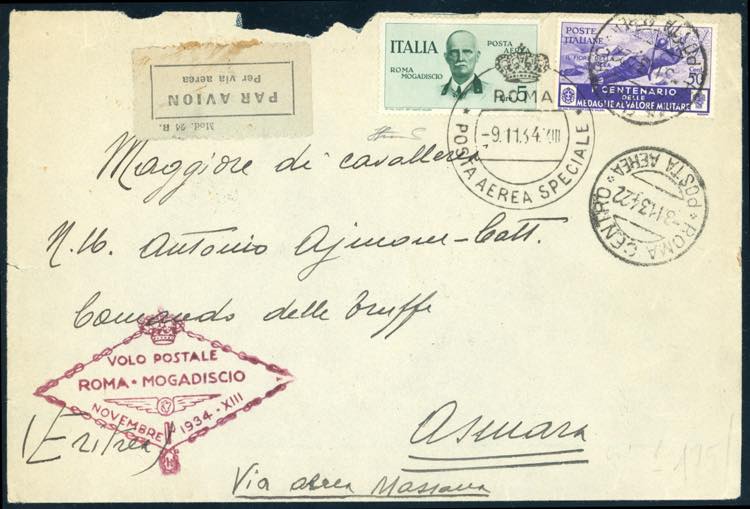 Mod. 24 R.
PAR AVION
Per via aerea
ITALIA
POSTA AEREA
ROMA MOGADISCIO
5
POSTE ITALIANE
CENTENARIO
DELLE
MEDAGLIE AL VALORE MILITARE
ROMA
-9.11.34.XIII
* POSTA AEREA SPECIALE *
* ROMA CENTRO *
-8.11.34.22
POSTA AEREA
Maggiore di cavalleria
N.H. Antonio Ajmone-Catt.
Comando delle Truffe
VOLO POSTALE
ROMA • MOGADISCIO
NOVEMBRE 1934 - XIII
(Eritrea)
Asmara
Via aerea Massaua